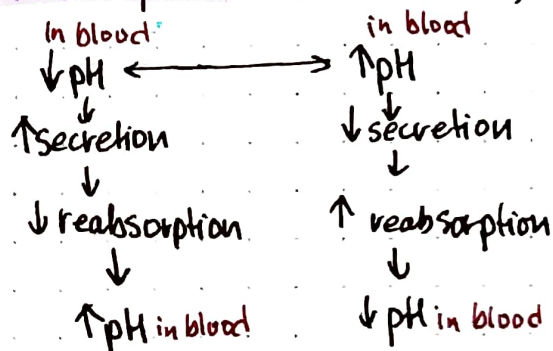 In blood
↓pH ↔ ↑pH
in blood
↓
↑secretion
↓
↓reabsorption
↓
↑pH in blood
↓
↓secretion
↓
↑ reabsorption
↓
↓pH in blood